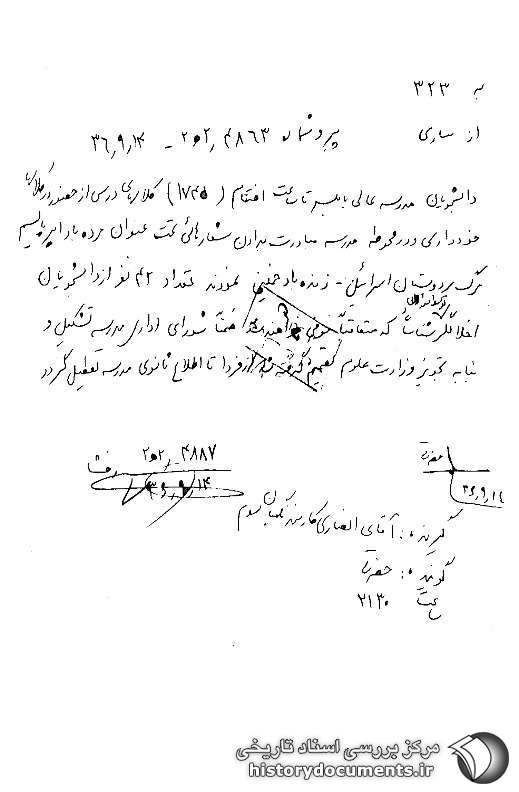 به ۳۲۳
از ساری پیرو شماره ۴۸۶۳ / ۲ه۲ - ۳۶٫۹٫۱۴
دانشجویان مدرسه عالی بابلسر تا ساعت اختتام (۱۷۴۵) کلاسهای درس از حضور در کلاسها
خودداری و در محوطه مدرسه مبادرت بدادن شعارهائی تحت عنوان مرده باد امپریالیسم
مرگ بر دوستان اسرائیل - زنده باد خمینی نمودند تعداد ۴۲ نفر از دانشجویان
اخلالگر شناسائی که متعاقباً ضمناً شورای اداری مدرسه تشکیل و
بنا به تجویز وزارت علوم تصمیم گرفته شد از فردا تا اطلاع ثانوی مدرسه تعطیل گردد
۴۸۸۷ / ۲ه۲
۳۶٫۹٫۱۴
۳۶٫۹٫۱۴
گیرنده: آقای انصاری کارمند نگهبان سوم
گوینده: حضرتی
ساعت ۲۱۳۰
مرکز بررسی اسناد تاریخی
historydocuments.ir